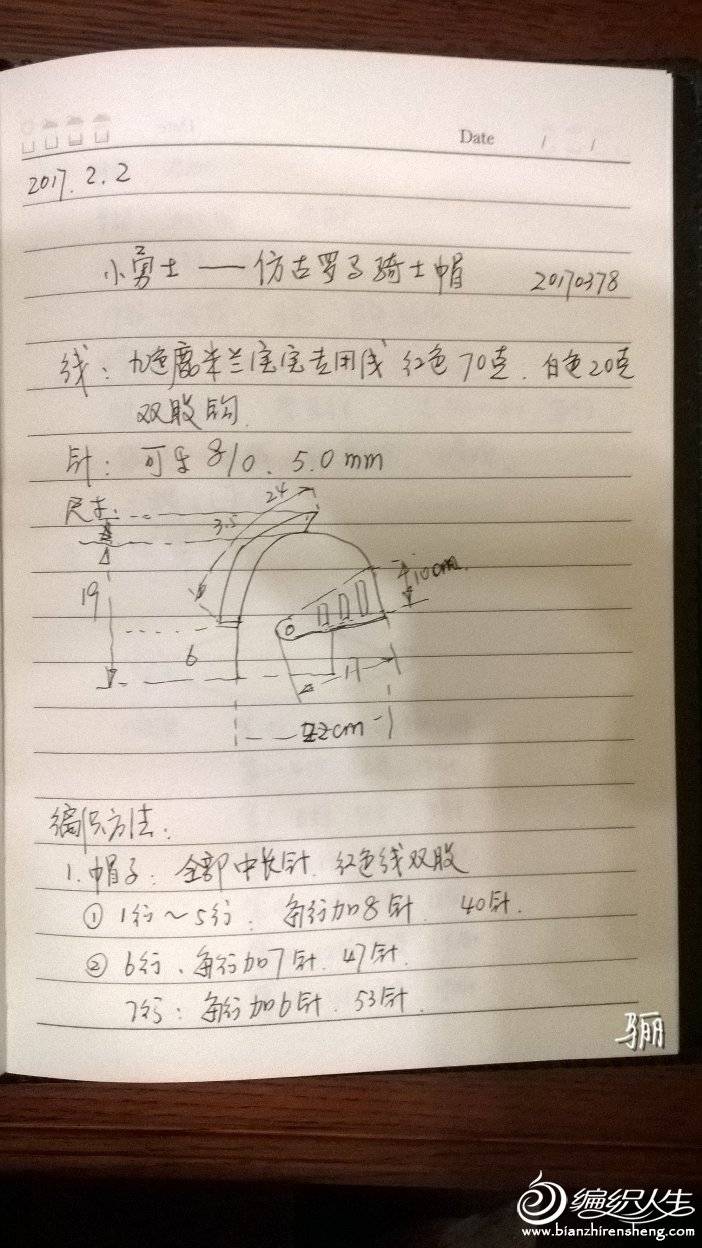 Date / /
2017.2.2
小勇士——仿古罗马骑士帽 20170378
线：九色鹿米兰宝宝专用线 红色70克．白色20克
双股钩
针：可乐 8/0．5.0mm
尺寸：
24
3.5
19
10cm
6
17
22cm
编织方法：
1.帽子：全部中长针．红色线双股
① 1行～5行．每行加8针 40针．
② 6行、每行加7针．47针．
7行：每行加6针．53针．
骊
编织人生
www.bianzhirensheng.com